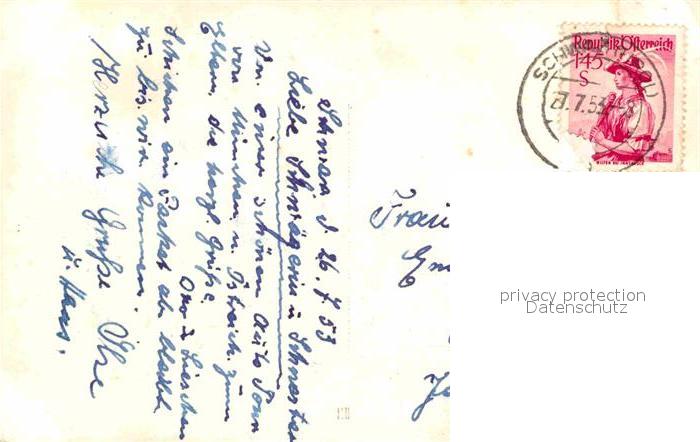 Schwaz d. 26.7.53
Liebe Schwägerin u Schwester
Von einer schönen Auto Tour
von München u. Östreich zum
Eltern, die herzl. Grüße.
Otto & Lieschen
Schicken ein Packet ab bleibt
zu bis wir komen.
Herzliche Grüße Ilse
u. Hans.
Frau
Em
Republik Österreich
1.45
S
SCHW
7.7.53
privacy protection
Datenschutz